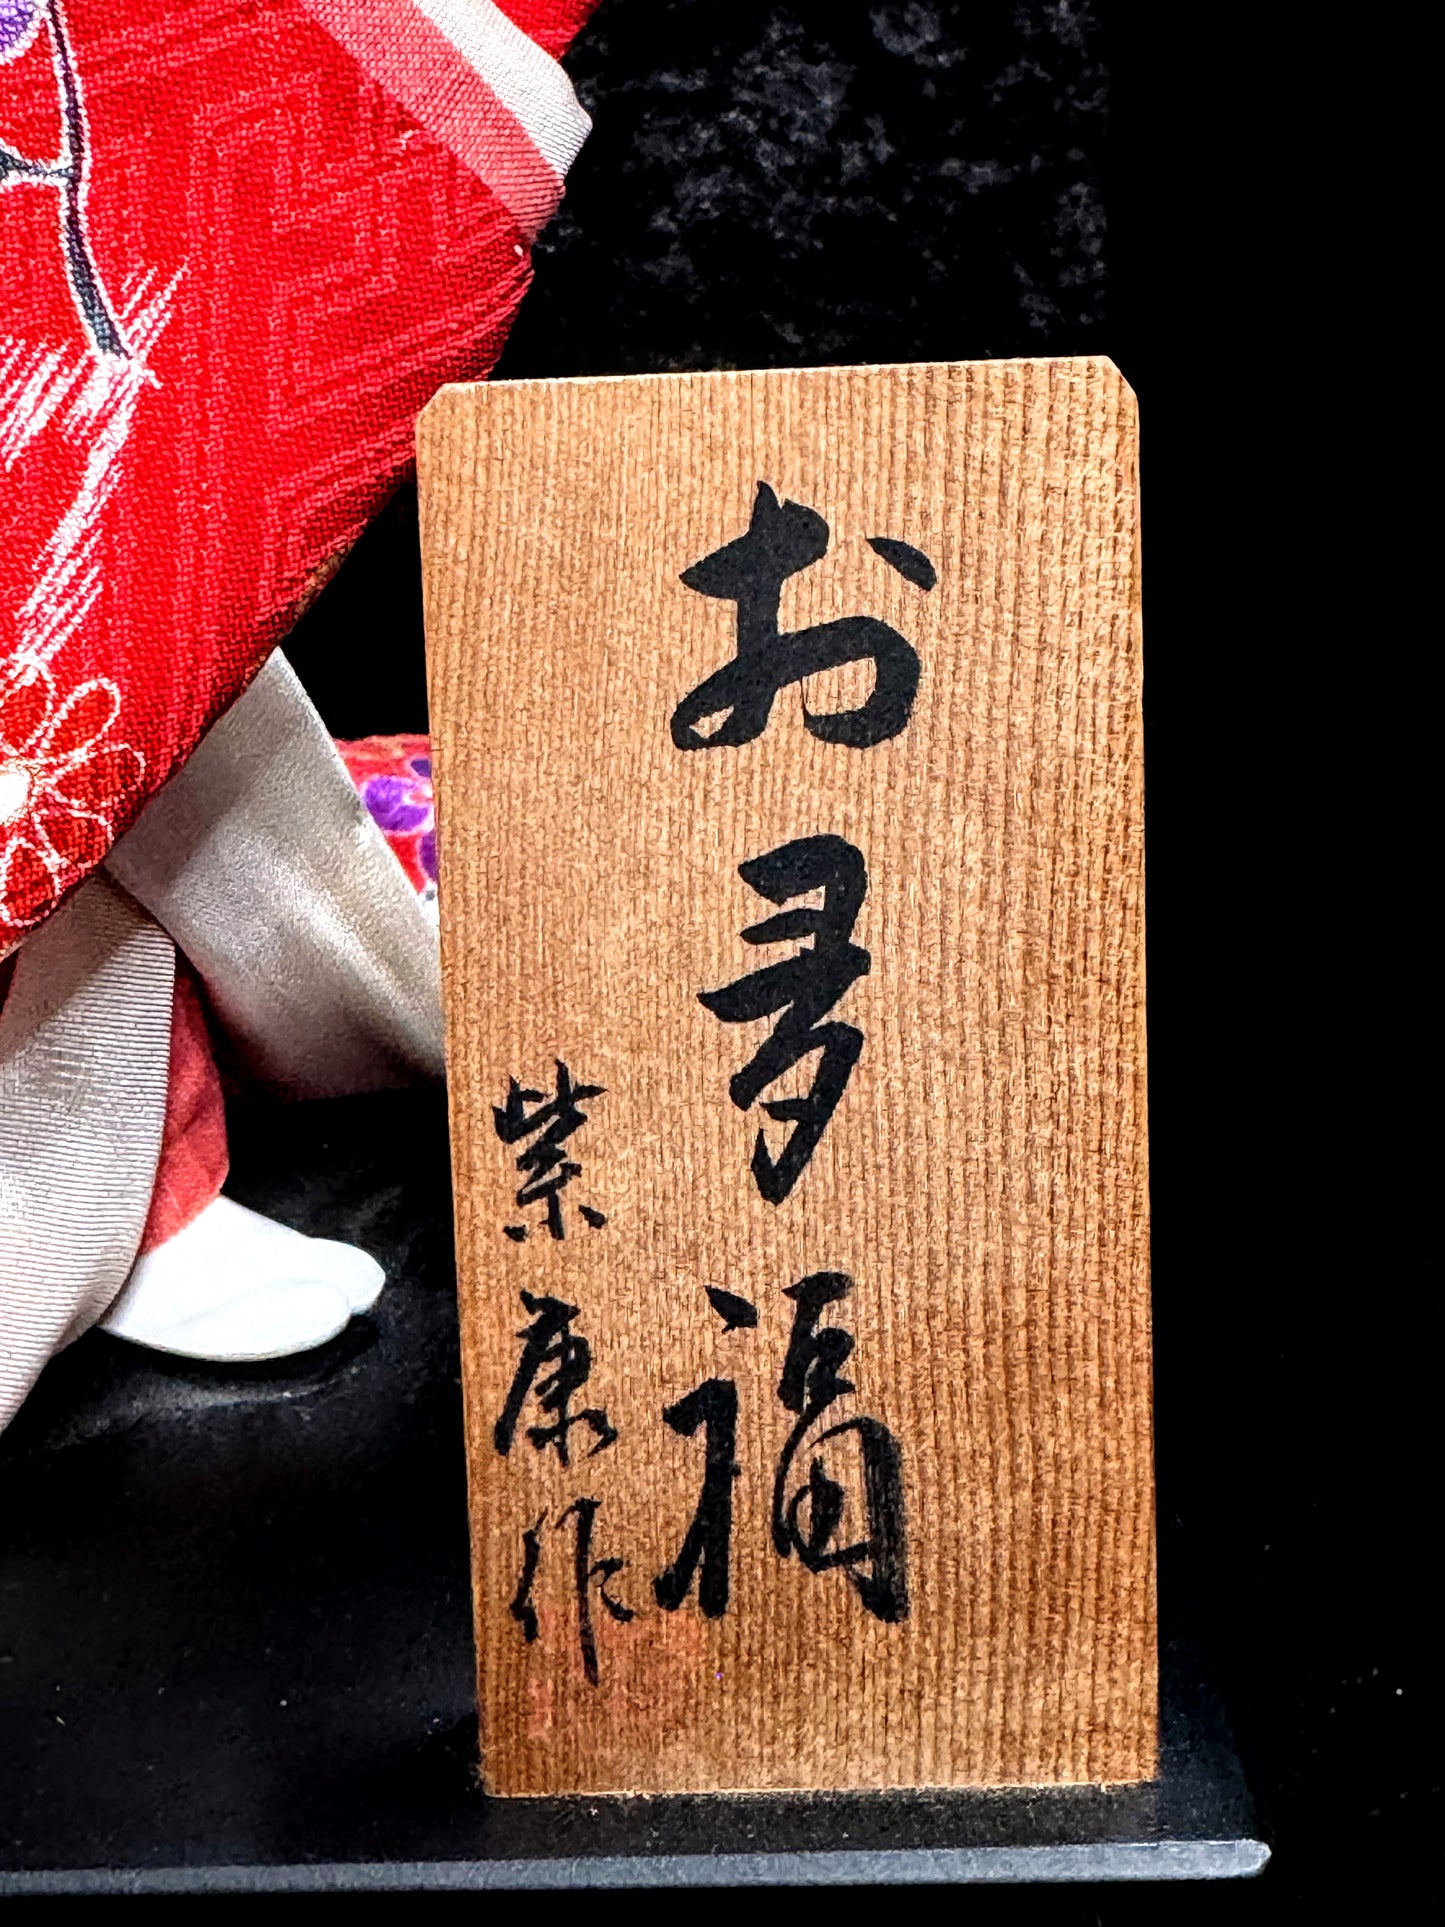 お多福
紫康作